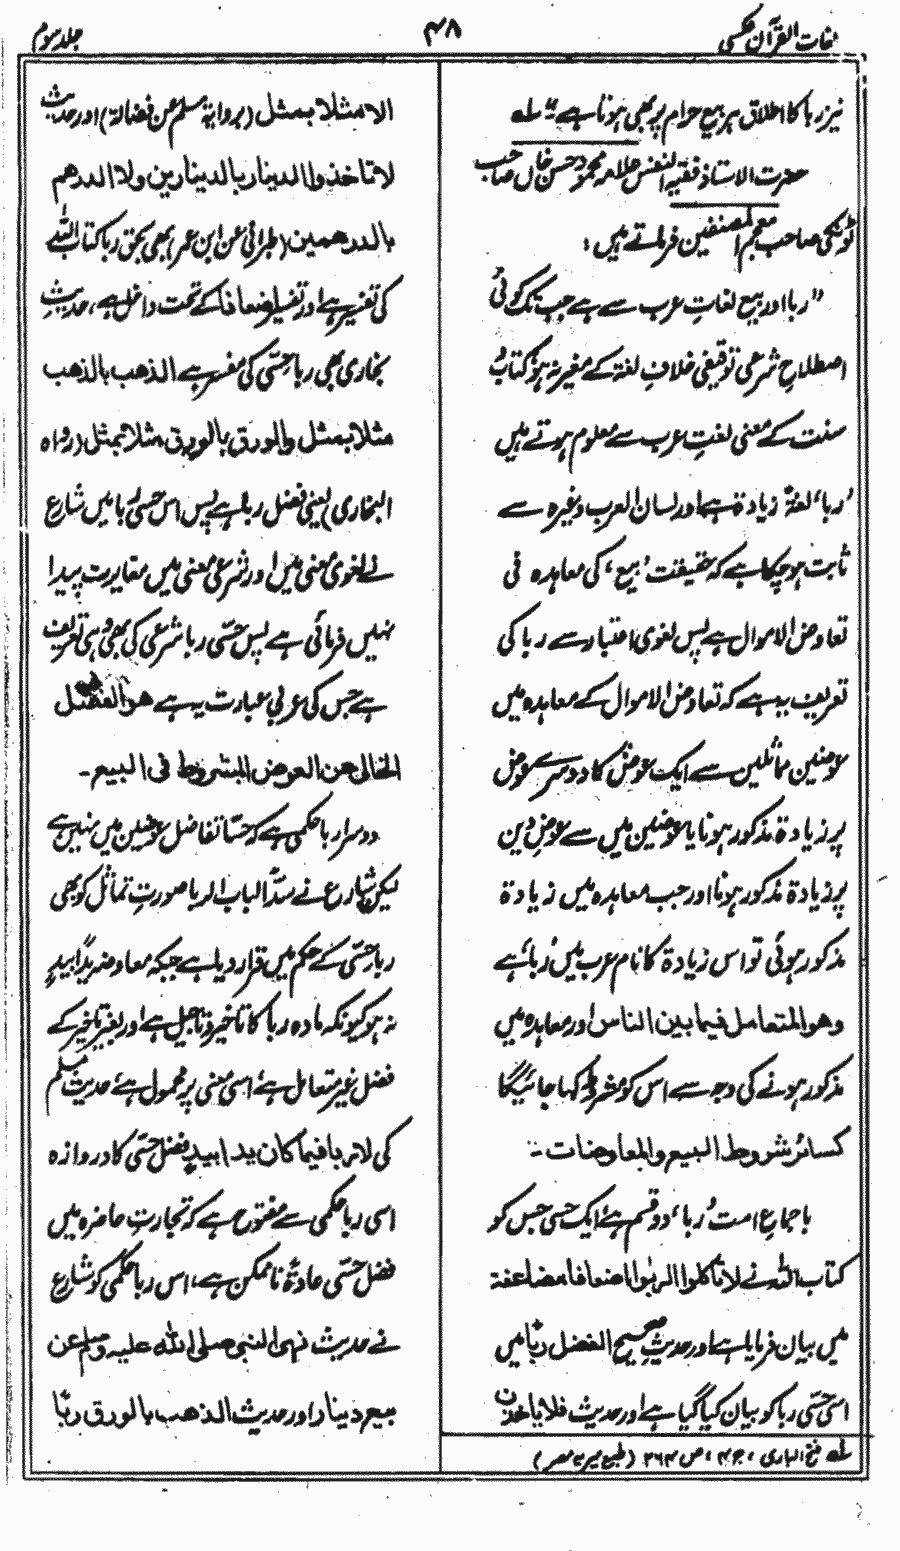 لغات القرآن عکسی
۴۸
جلد سوم
نیز ربا کا اطلاق ہر بیع حرام پر بھی ہوتا ہے" لہ
حضرت الاستاذ فقیہ النفس علامہ محمود حسن خاں صاحب
ٹونکی صاحب معجم المصنفین فرماتے ہیں :
"ربا اور بیع لغاتِ عرب سے ہے جب تک کوئی
اصطلاحِ شرعی توقیفی خلافِ لغۃ کے مغیر نہ ہو کتاب و
سنت کے معنی لغتِ عرب سے معلوم ہوتے ہیں
'ربا' لغۃً زیادۃ ہے اور لسان العرب وغیرہ سے
ثابت ہو چکا ہے کہ حقیقت 'بیع' کی معاہدہ فی
تعاوض الاموال ہے پس لغوی اعتبار سے ربا کی
تعریف یہ ہے کہ تعاوض الاموال کے معاہدہ میں
عوضین مماثلین سے ایک عوض کا دوسرے عوض
پر زیادۃ مذکور ہونا یا عوضین میں سے عوضِ دین
پر زیادۃ مذکور ہونا اور جب معاہدہ میں زیادۃ
مذکور ہوئی تو اس زیادۃ کا نام عرب میں 'ربا' ہے
وهو المتعامل فیما بین الناس اور معاہدہ میں
مذکور ہونے کی وجہ سے اس کو مشروط کہا جائیگا
کسائر شروط البیع والمعاوضات ۔
باجماعِ امت 'ربا' دو قسم ہے ایک حسی جس کو
کتاب اللہ نے لا تاکلوا الربٰوا اضعافا مضاعفۃ
میں بیان فرمایا ہے اور حدیثِ صحیح الفضل ربًا میں
اسی حسّی ربا کو بیان کیا گیا ہے اور حدیث فلا یاخذن
لہ فتح الباری ، ج ۴ ، ص ۲۶۴ (طبع میریہ مصر)
الا مثلا بمثل (بروایۃ مسلم عن فضالۃ) اور حدیث
لا تاخذوا الدینار بالدینارین ولا الدرهم
بالدرهمین (طبرانی عن ابن عمر) بھی بحق ربا کتاب اللہ
کی تفسیر ہے اور تفسیر اضعافا کے تحت داخل ہے، حدیثِ
بخاری بھی ربا حسّی کی مفسر ہے الذهب بالذهب
مثلا بمثل والورق بالورق مثلا بمثل (رواہ
البخاری) یعنی فضل ربا ہے پس اس حسی ربا میں شارع
نے لغوی معنی میں اور شرعی معنی میں مغایرت پیدا
نہیں فرمائی ہے پس حسّی ربا شرعی کی بھی وہی تعریف
ہے جس کی عربی عبارت یہ ہے هو الفضل
الخالی عن العوض المشروط فی البیع ۔
دوسرا ربا حکمی ہے کہ حسًّا تفاضل عوضین میں نہیں ہے
لیکن شارع نے سدًّا لباب الربا صورتِ تماثل کو بھی
ربا حسّی کے حکم میں قرار دیا ہے جبکہ معاوضہ یدًا بیدٍ
نہ ہو کیونکہ مادہ ربا کا تاخیر و تاجیل ہے اور بغیر تاخیر کے
فضل غیر متعامل ہے، اسی معنی پر محمول ہے، حدیث مسلم
کی لا ربا فیما کان یدا بیدٍ فضل حسّی کا دروازہ
اسی ربا حکمی سے مفتوح ہے کہ تجارتِ حاضرہ میں
فضل حسّی عادۃً ناممکن ہے، اس ربا حکمی کو شارع
نے حدیث نهى النبی صلی اللہ علیہ وسلم عن
بیع دینار اور حدیث الذهب بالورق ربًا